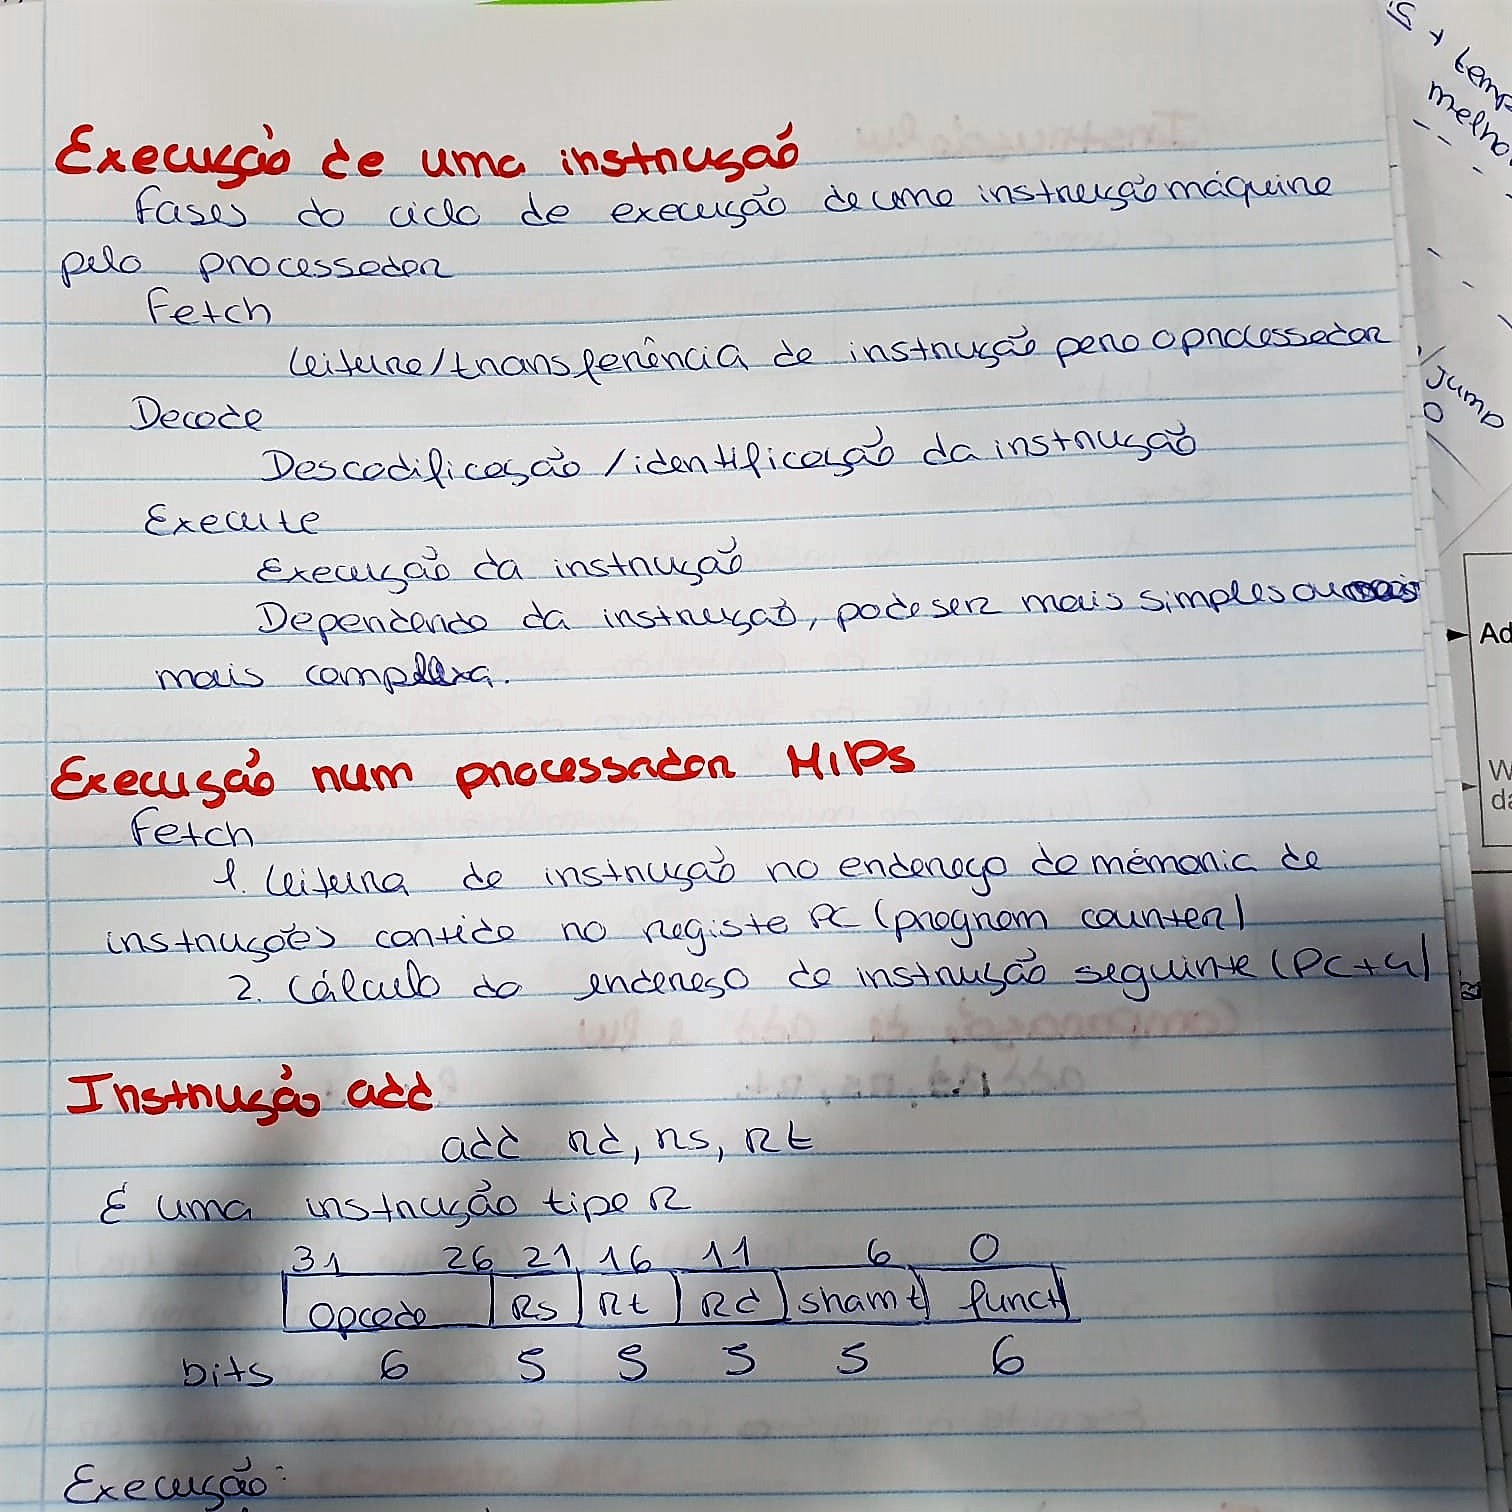 Execução de uma instrução
Fases do ciclo de execução de uma instrução máquina
pelo processador
Fetch
Leitura/transferência de instrução para o processador
Decode
Descodificação/identificação da instrução
Execute
Execução da instrução
Dependendo da instrução, pode ser mais simples ou
mais complexa.
Execução num processador MIPs
Fetch
1. Leitura de instrução no endereço de mémoria de
instruções contido no registe PC (program counter)
2. Cálculo do endereço de instrução seguinte (PC+4)
Instrução add
add rd, rs, Rt
É uma instrução tipo R
31 26 21 16 11 6 0
Opcode Rs Rt Rd shamt funct
bits 6 5 5 5 5 6
Execução:
5 +
melho
Jump
0
Ad
W